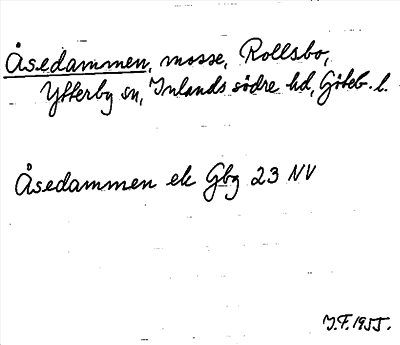 Åsedammen, mosse, Rollsbo,
Ytterby sn, Inlands södre hd, Göteb. l.
Åsedammen ek Gbg 23 NV
J.F. 1955.